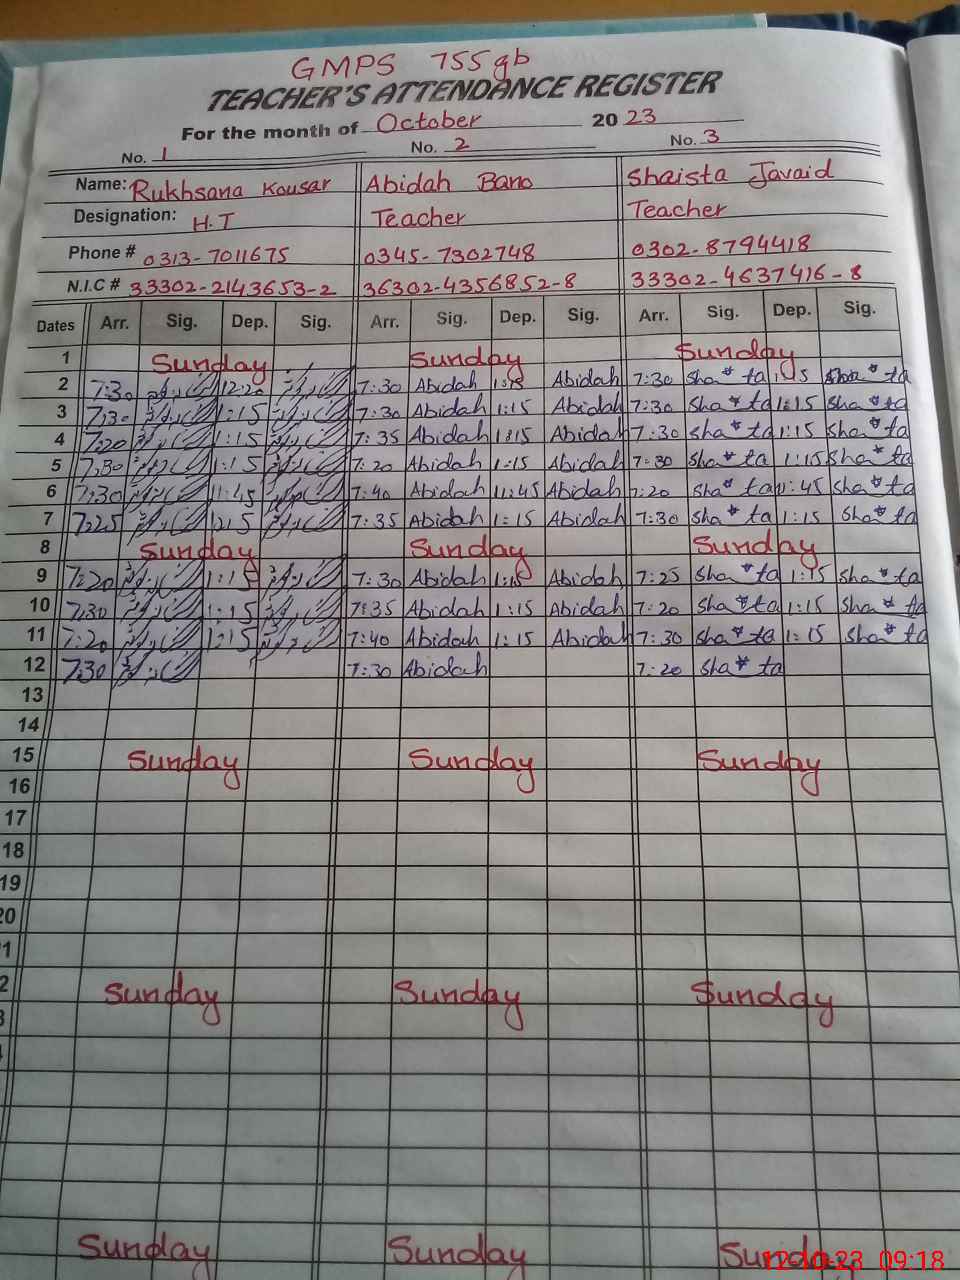 GMPS 755gb
TEACHER'S ATTENDANCE REGISTER
For the month of October 2023
No. 1 No. 2 No. 3
Name: Rukhsana Kousar Abidah Bano Shaista Javaid
Designation: H.T Teacher Teacher
Phone # 0313-7011675 0345-7302748 0302-8794418
N.I.C # 33302-2143653-2 36302-4356852-8 33302-4637416-8
Dates Arr. Sig. Dep. Sig. Arr. Sig. Dep. Sig. Arr. Sig. Dep. Sig.
1 Sunday Sunday Sunday
2 7:30 12:20 7:30 Abidah 1:15 Abidah 7:30 Sha*ta 1:15 Sha*ta
3 7:30 1:15 7:30 Abidah 1:15 Abidah 7:30 Sha*ta 1:15 Sha*ta
4 7:20 1:15 7:35 Abidah 1:15 Abidah 7:30 Sha*ta 1:15 Sha*ta
5 7:30 1:15 7:20 Abidah 1:15 Abidah 7:30 Sha*ta 1:15 Sha*ta
6 7:30 11:45 7:40 Abidah 11:45 Abidah 7:20 Sha*ta 11:45 Sha*ta
7 7:25 1:15 7:35 Abidah 1:15 Abidah 7:30 Sha*ta 1:15 Sha*ta
8 Sunday Sunday Sunday
9 7:20 1:15 7:30 Abidah 1:15 Abidah 7:25 Sha*ta 1:15 Sha*ta
10 7:30 1:15 7:35 Abidah 1:15 Abidah 7:20 Sha*ta 1:15 Sha*ta
11 7:20 1:15 7:40 Abidah 1:15 Abidah 7:30 Sha*ta 1:15 Sha*ta
12 7:30 7:30 Abidah 7:20 Sha*ta
13
14
15 Sunday Sunday Sunday
16
17
18
19
20
1
2 Sunday Sunday Sunday
3
Sunday Sunday Sunday
12-10-23 09:18